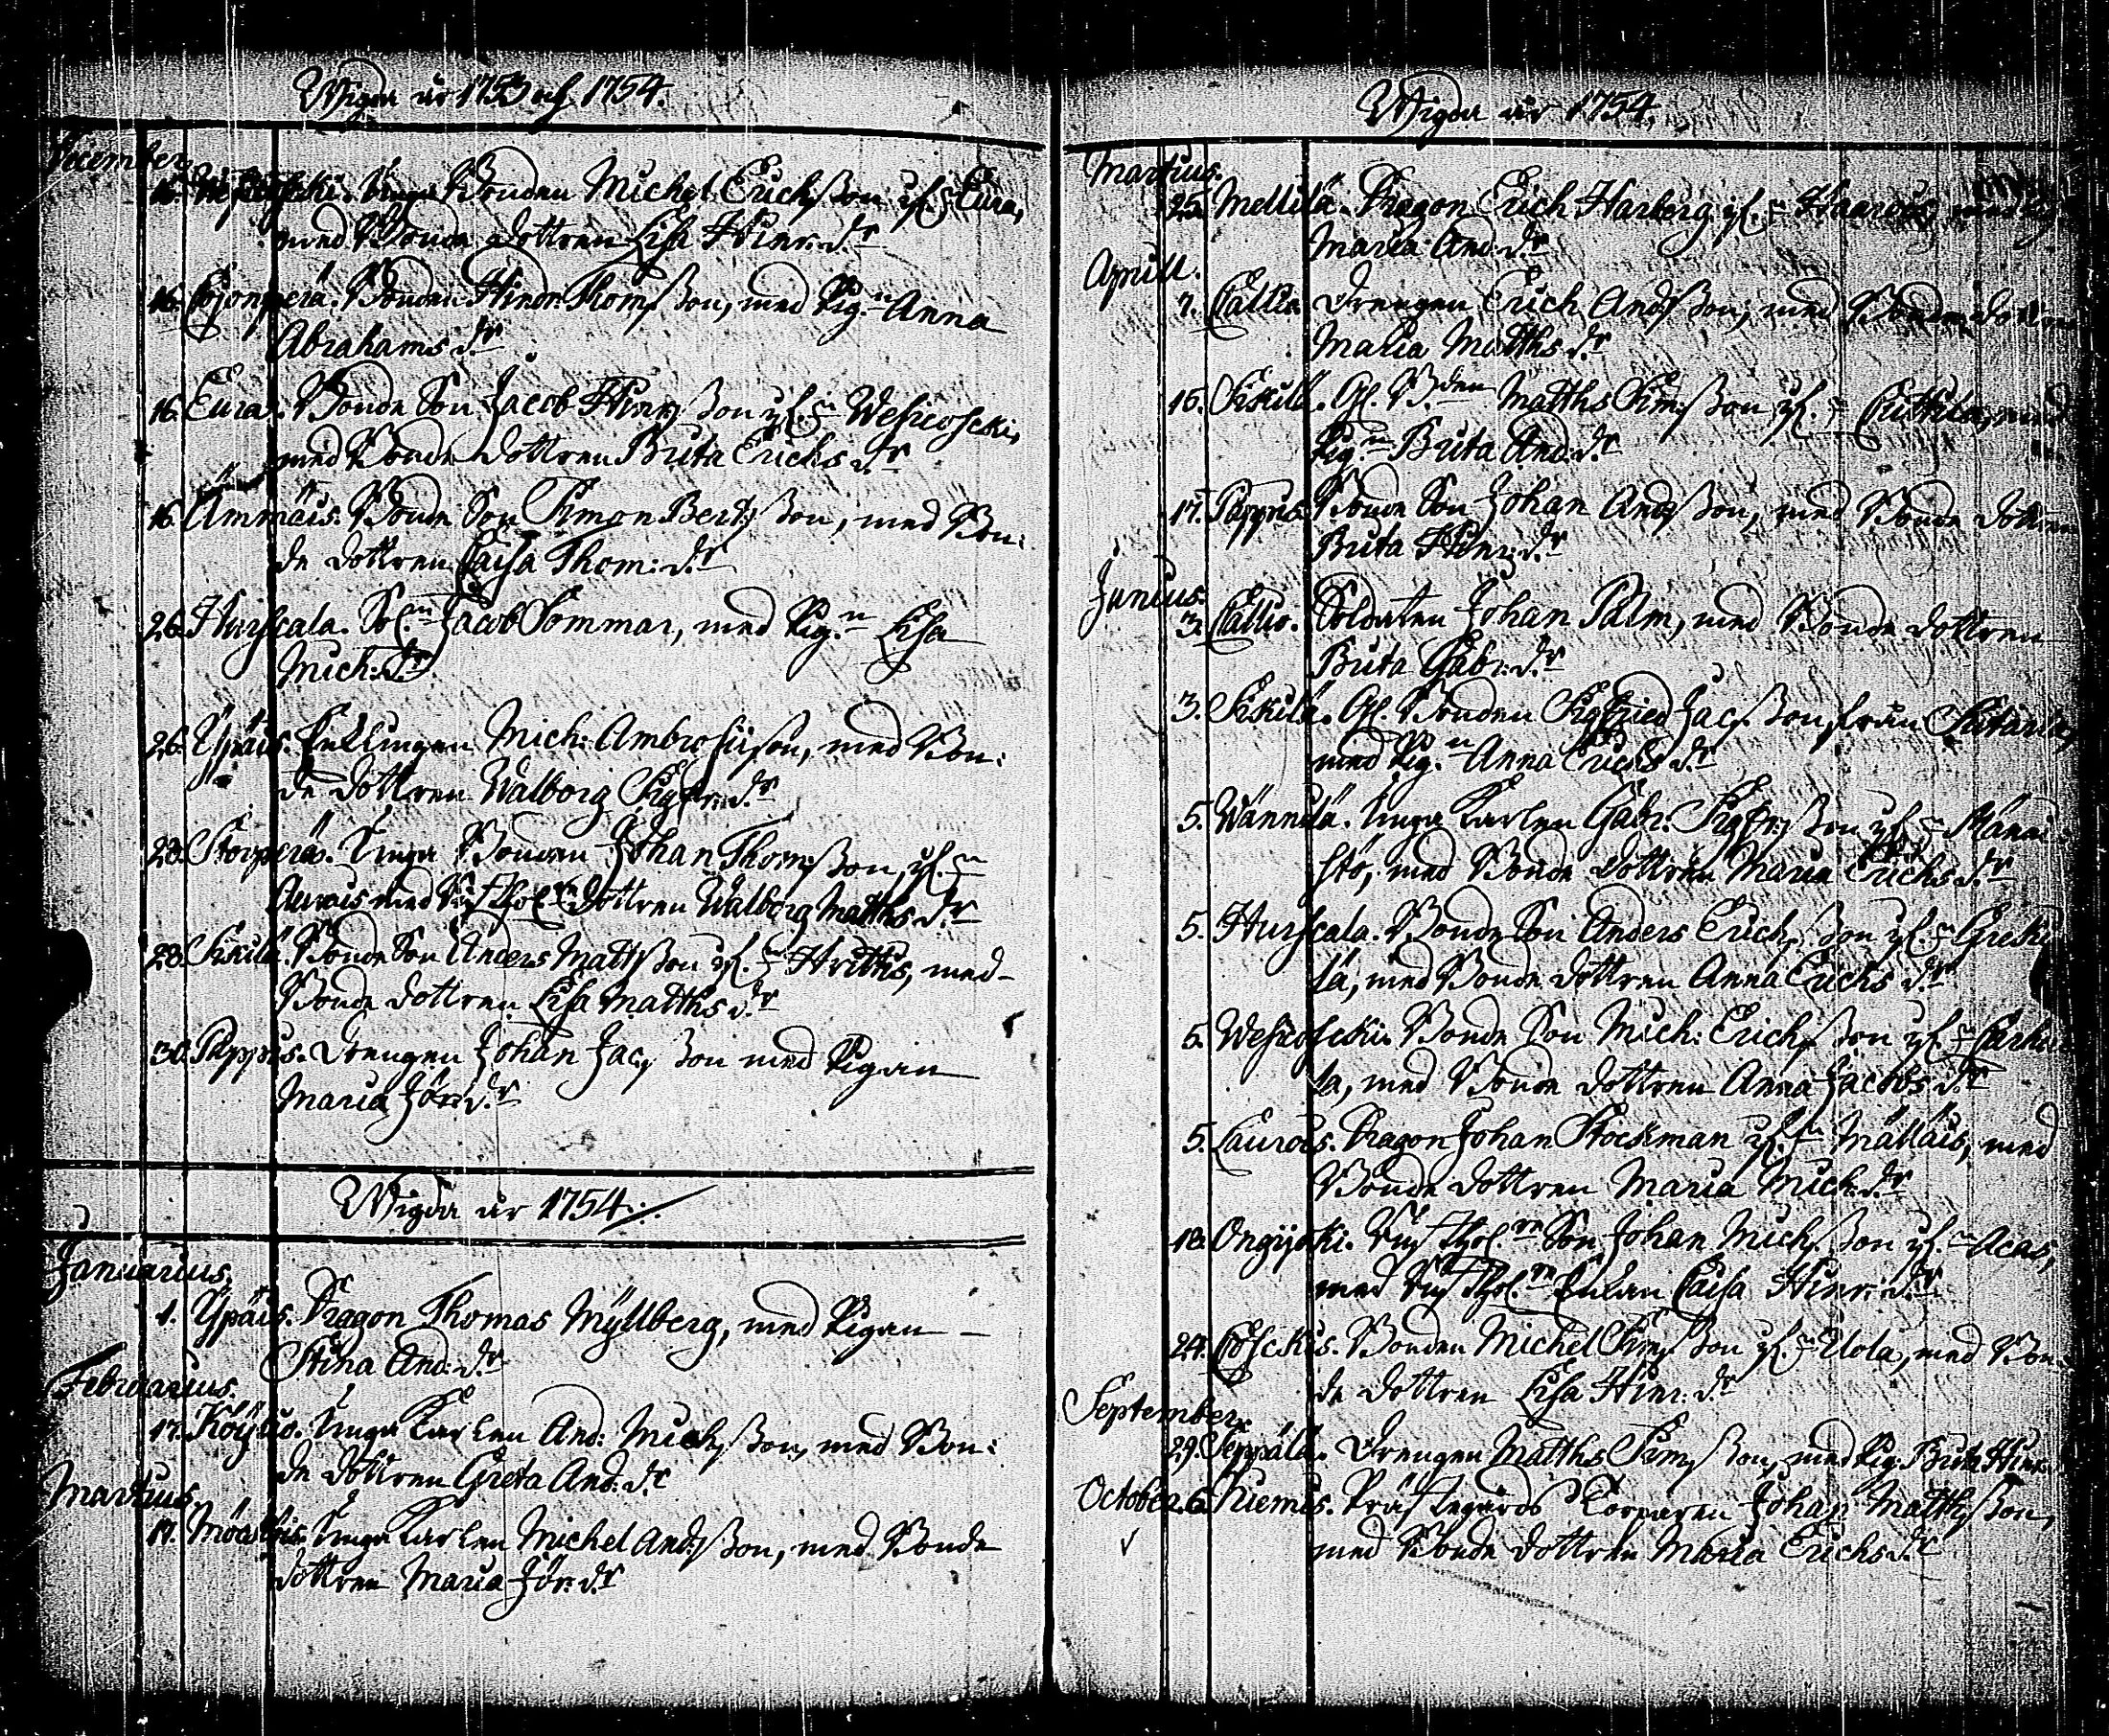 Wigda år 1753 och 1754.
December
16. Unga Bonden Michel Erichsson if. Eura,
med Bonde dottren Lisa Hinr: dr
16. Bonden Hindr: Thomsson, med Pig.n Anna
Abrahams dr
16. Eura. Bonde Son Jacob Hinrsson if. Wesicoscki,
med Bonde dottren Brita Erichs dr
16. Ammäis. Bonde Son Simon Bertsson, med Bon:
de dottren Caisa Thom: dr
26. Hurscala. Jacob Sommar, med Pig.n Lisa
Mich: dr
26. Ypäis. Enklingen Mich: Ambrosiison, med Bon:
de dottren Walborg Sigfr: dr
28. Unga Bonden Johan Thomsson, if.
med dottren Walborg Matths dr
28. Kiskila. Bonde Son Anders Mattsson if. Hriths, med
Bonde dottren Lisa Matths dr
30. Pappis. Drengen Johan Jacsson med Pigan
Maria Jör: dr
Wigda år 1754.
Januarius.
1. Ypäis. Dragon Thomas Myllberg, med Pigan
Stina And: dr
Februarius.
17. Köyliö. Unga Karlen And: Michsson, med Bon:
de dottren Greta And: dr
Martius
17. Unga Karlen Michel Andsson, med Bonde
dottren Maria Jör: dr
Wigda år 1754.
Martius.
25. Mellilä. Dragon Erich Harberg if.
Maria And: dr
Aprill.
7. Drengen Erich Andsson, med Bonde dottren
Maria Matths dr
16. Kiskila. Gl. B.den Matths Simsson if.
Pig.n Brita And: dr
17. Pappis. Bonde Son Johan Andsson, med Bonde dottren
Brita Hinr: dr
Junius.
3. Callio. Soldaten Johan Palm, med Bonde dottren
Brita Gabr: dr
3. Kiskila. Gl. Bonden Sigfried Jacsson, från
med Pig.n Anna Erichs dr
5. Wännilä. Unga Karlen Gabr: Sigfrsson if. Mänai
stö, med Bonde dottren Maria Erichs dr
5. Hurscala. Bonde Son Anders Erichsson if. Greki
lä, med Bonde dottren Anna Erichs dr
5. Wesicoscki. Bonde Son Mich: Erichsson if.
la, med Bonde dottren Anna Jacobs dr
5. Laurois. Dragon Johan Stockman if. Mälläis, med
Bonde dottren Maria Mich: dr
18. Ongijoki. Son Johan Michsson if. Acas,
med Enkan Caisa Hinr: dr
24. Coschis. Bonden Michel Simsson if. Uola, med Bon:
de dottren Lisa Hinr: dr
September.
29. Seppälä. Drengen Matths Simsson, med Pig. Brita Hinr
October. 6. Niemis. Prästegårds Torparen Johan Matthsson,
med Bonde dottren Maria Erichs dr